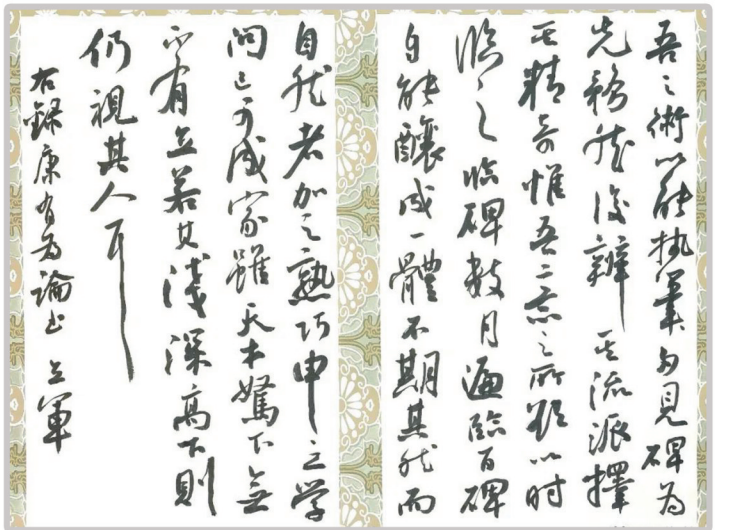 吾之術以能執筆多見碑为
先務然後辨其流派擇
其精奇惟吾二意之所欲以时
臨之臨碑数月遍臨百碑
自能釀成一體不期其然而
自然者加之熟巧申之学
問已可成家雖天才駑下無
不有立若其淺深高下則
仍視其人耳
右録康有为論书 立軍